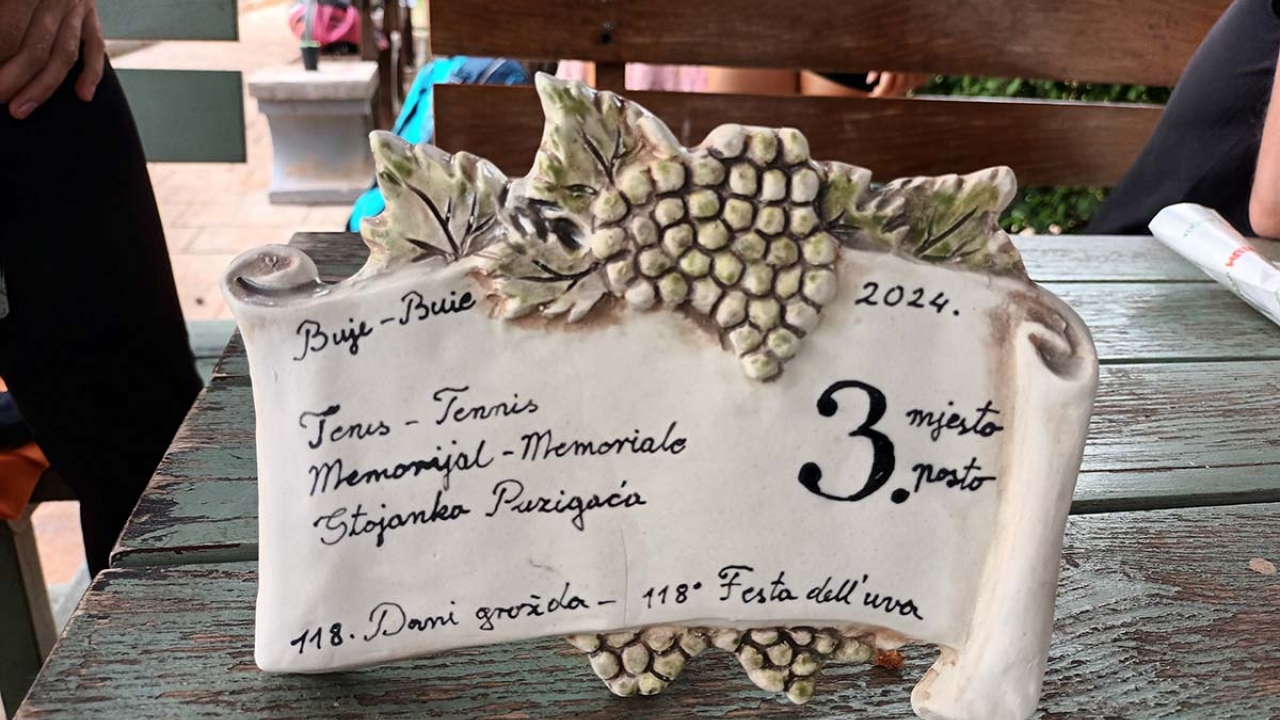 Buje - Buie
2024.
Tenis - Tennis
Memorijal - Memoriale
Stojanka Puzigaća
3. mjesto
posto
118. Dani grožđa - 118° Festa dell'uva